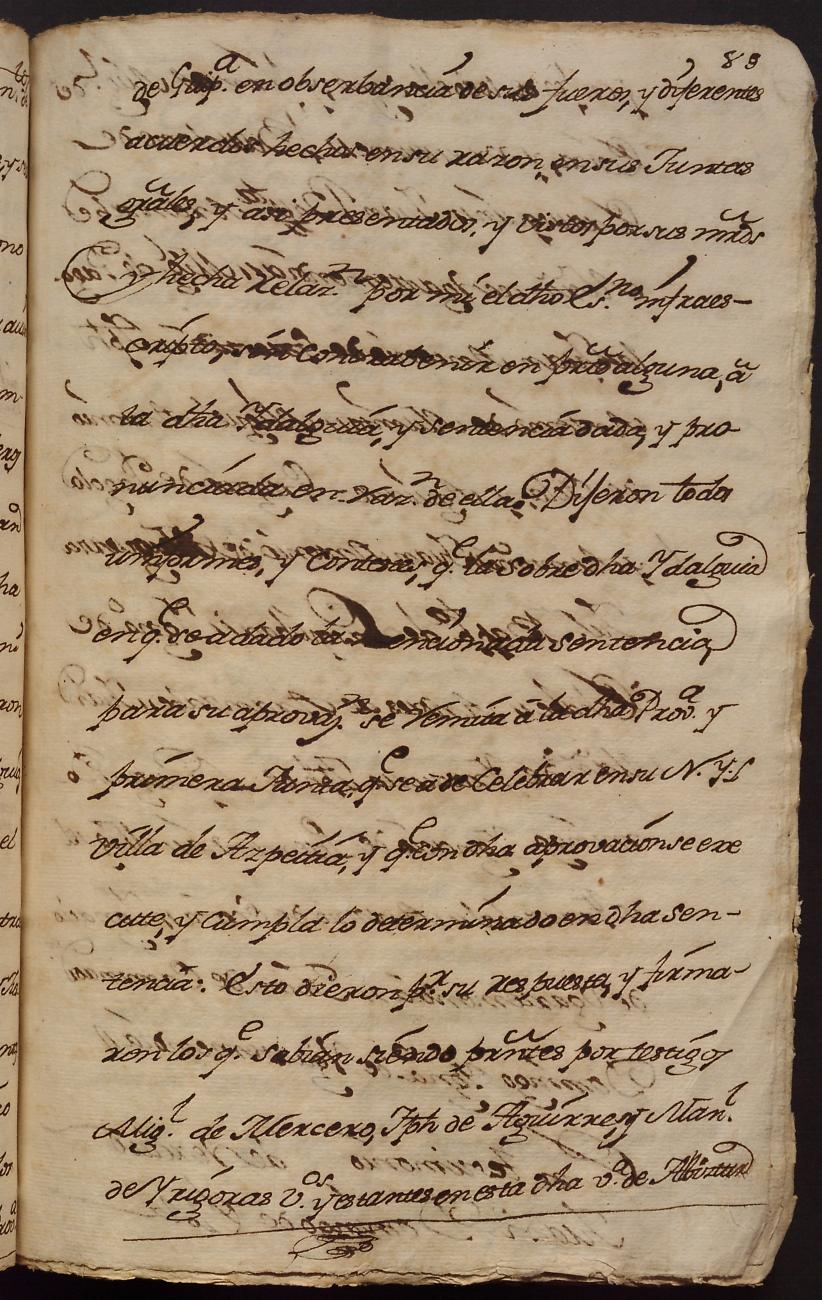 89
de Guip.ª en obserbancia de sus fueros, y diferentes
acuerdos hechos en su razon, en sus Juntas
grãles, y assi presentados, y vistos por sus mrds
y hecha relaz.n por mi el dho Es.no infraes-
cripto, sin contrabenir en prte alguna, a
la dha Ydalguia, y sentencia dada, y pro
nunciada en raz.n de ella: Dijeron todos
uniformes, y Contextes, q.e la sobredha Ydalguia
en q.e se a dado la Mencionada sentencia,
para su aprovaz.n se remita a la dha Prov.a y
primera Junta, q.e se a de Celebrar en su N. y L
villa de Azpeitia, y q.e con dha aprovacion se exe
cute, y Cumpla lo determinado en dha Sen-
tencia: Esto dieron p.r su respuesta, y firma-
ron los q.e sabian siendo prntes por testigos
Mig.l de Mercero, Jph de Aguirre, y Man.l
de Yrigoras v.os y estantes en esta dha v.a de Albiztur